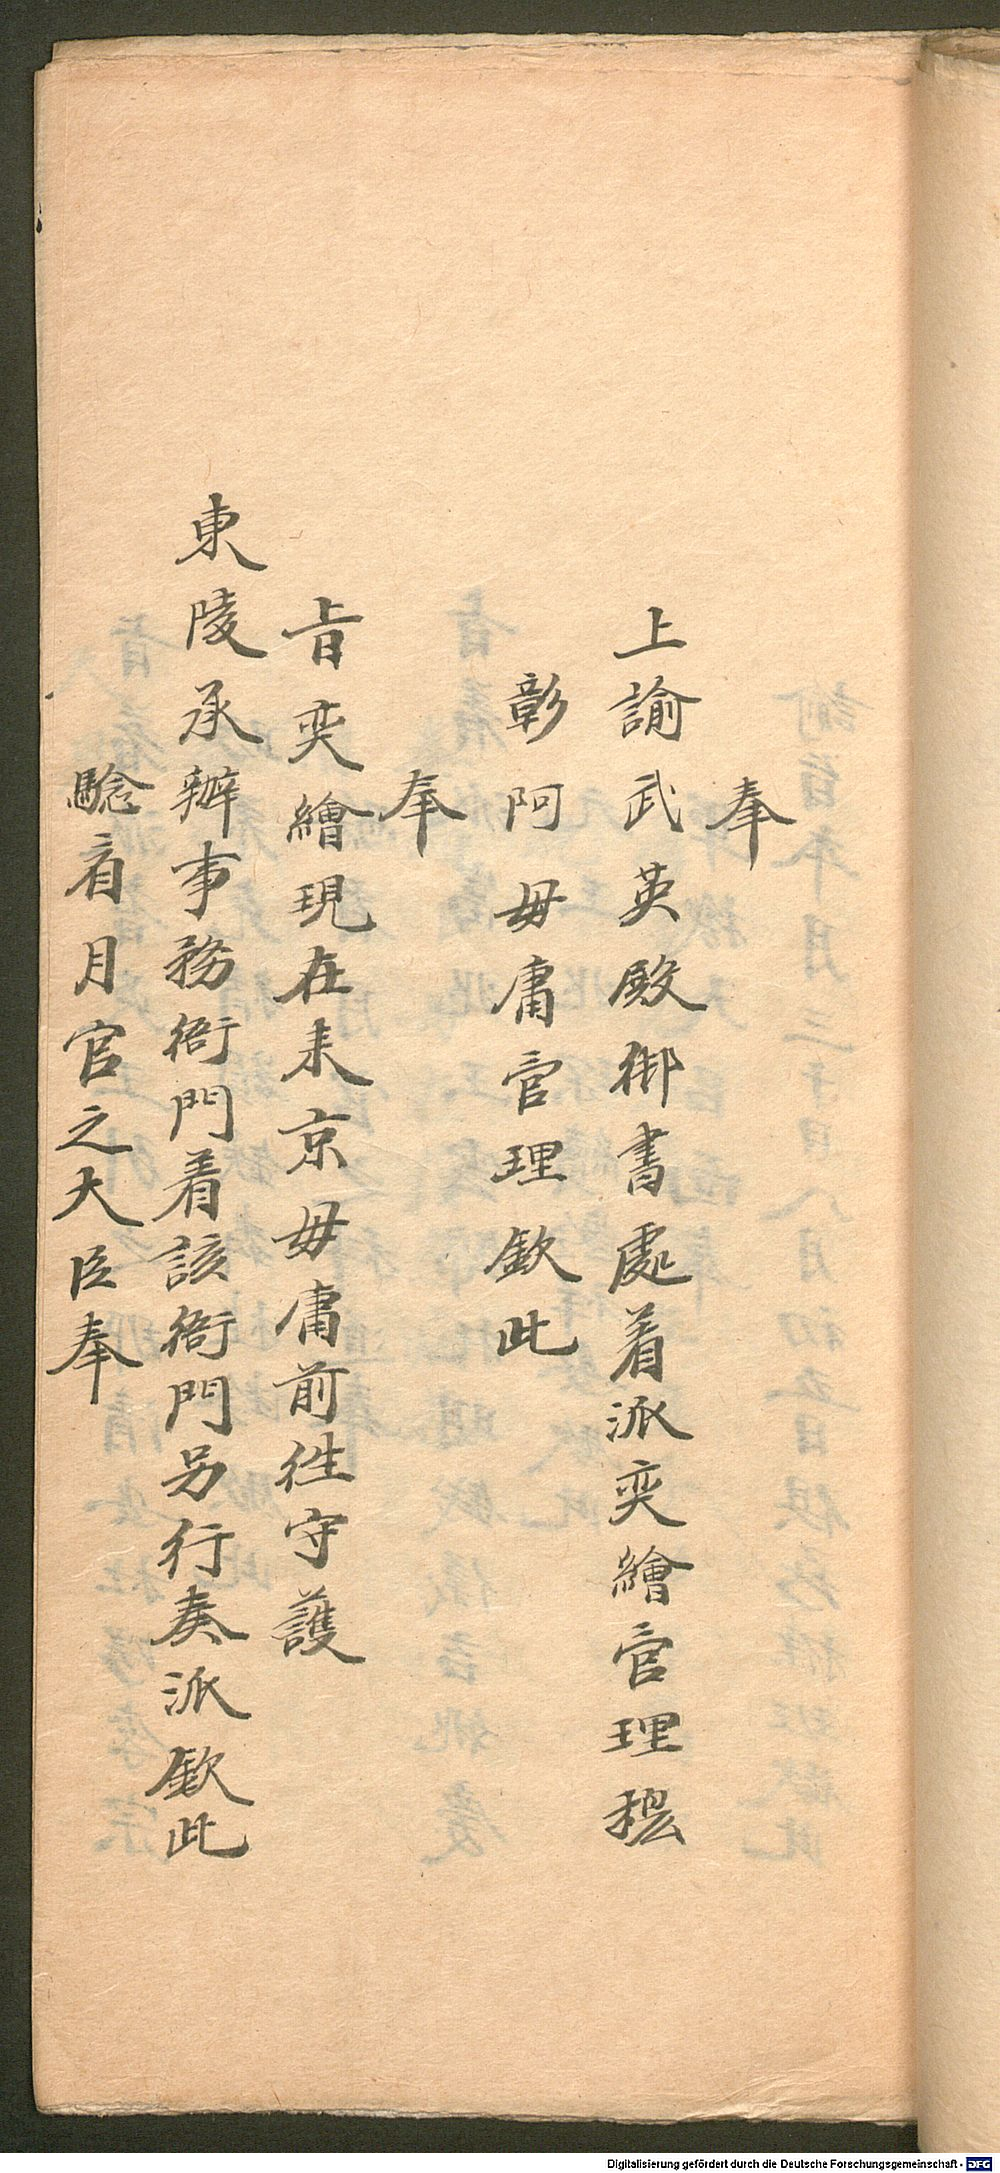 奉
上諭武英殿御書處着派奕繪管理穆
彰阿毋庸管理欽此
奉
旨奕繪現在來京毋庸前往守護
東陵承辦事務衙門着該衙門另行奏派欽此
驗看月官之大臣奉
Digitalisierung gefördert durch die Deutsche Forschungsgemeinschaft - DFG